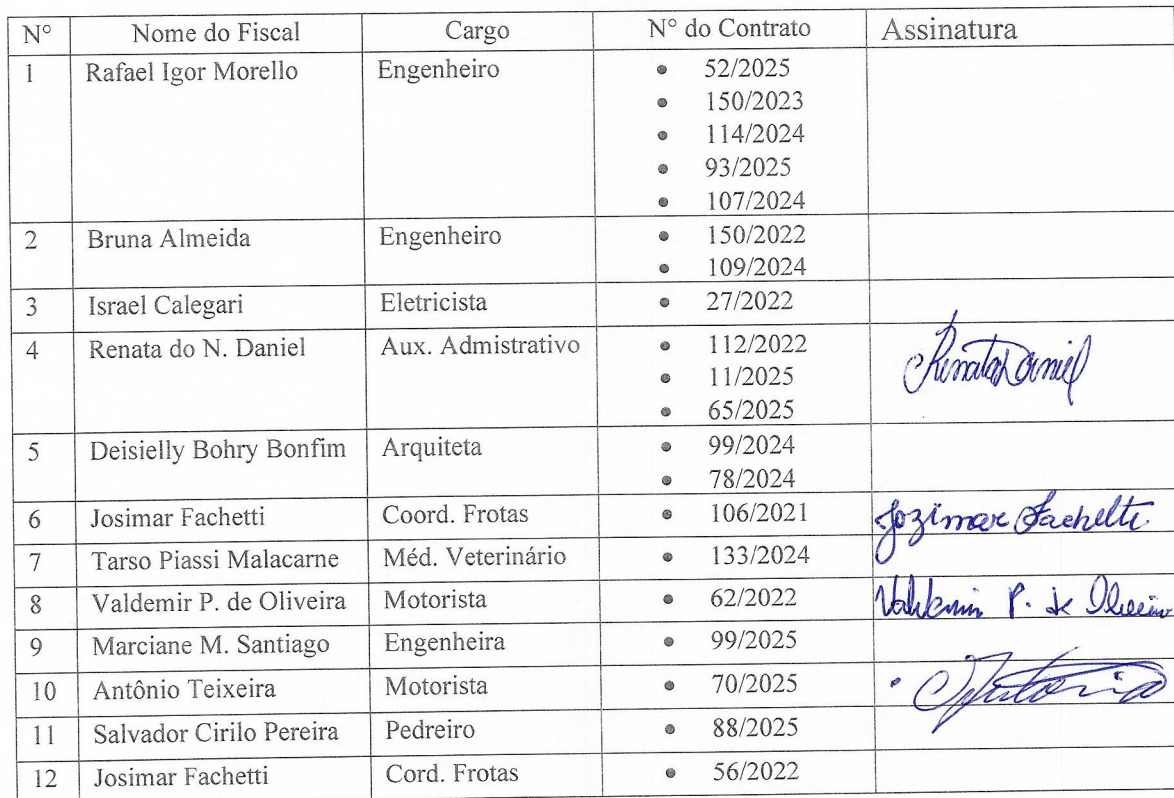 N° Nome do Fiscal Cargo N° do Contrato Assinatura
1 Rafael Igor Morello Engenheiro • 52/2025
• 150/2023
• 114/2024
• 93/2025
• 107/2024
2 Bruna Almeida Engenheiro • 150/2022
• 109/2024
3 Israel Calegari Eletricista • 27/2022
4 Renata do N. Daniel Aux. Admistrativo • 112/2022
• 11/2025 Renata Daniel
• 65/2025
5 Deisielly Bohry Bonfim Arquiteta • 99/2024
• 78/2024
6 Josimar Fachetti Coord. Frotas • 106/2021 Jozimar Fachetti
7 Tarso Piassi Malacarne Méd. Veterinário • 133/2024
8 Valdemir P. de Oliveira Motorista • 62/2022 Valdemir P. de Oliveira
9 Marciane M. Santiago Engenheira • 99/2025
10 Antônio Teixeira Motorista • 70/2025
11 Salvador Cirilo Pereira Pedreiro • 88/2025
12 Josimar Fachetti Cord. Frotas • 56/2022